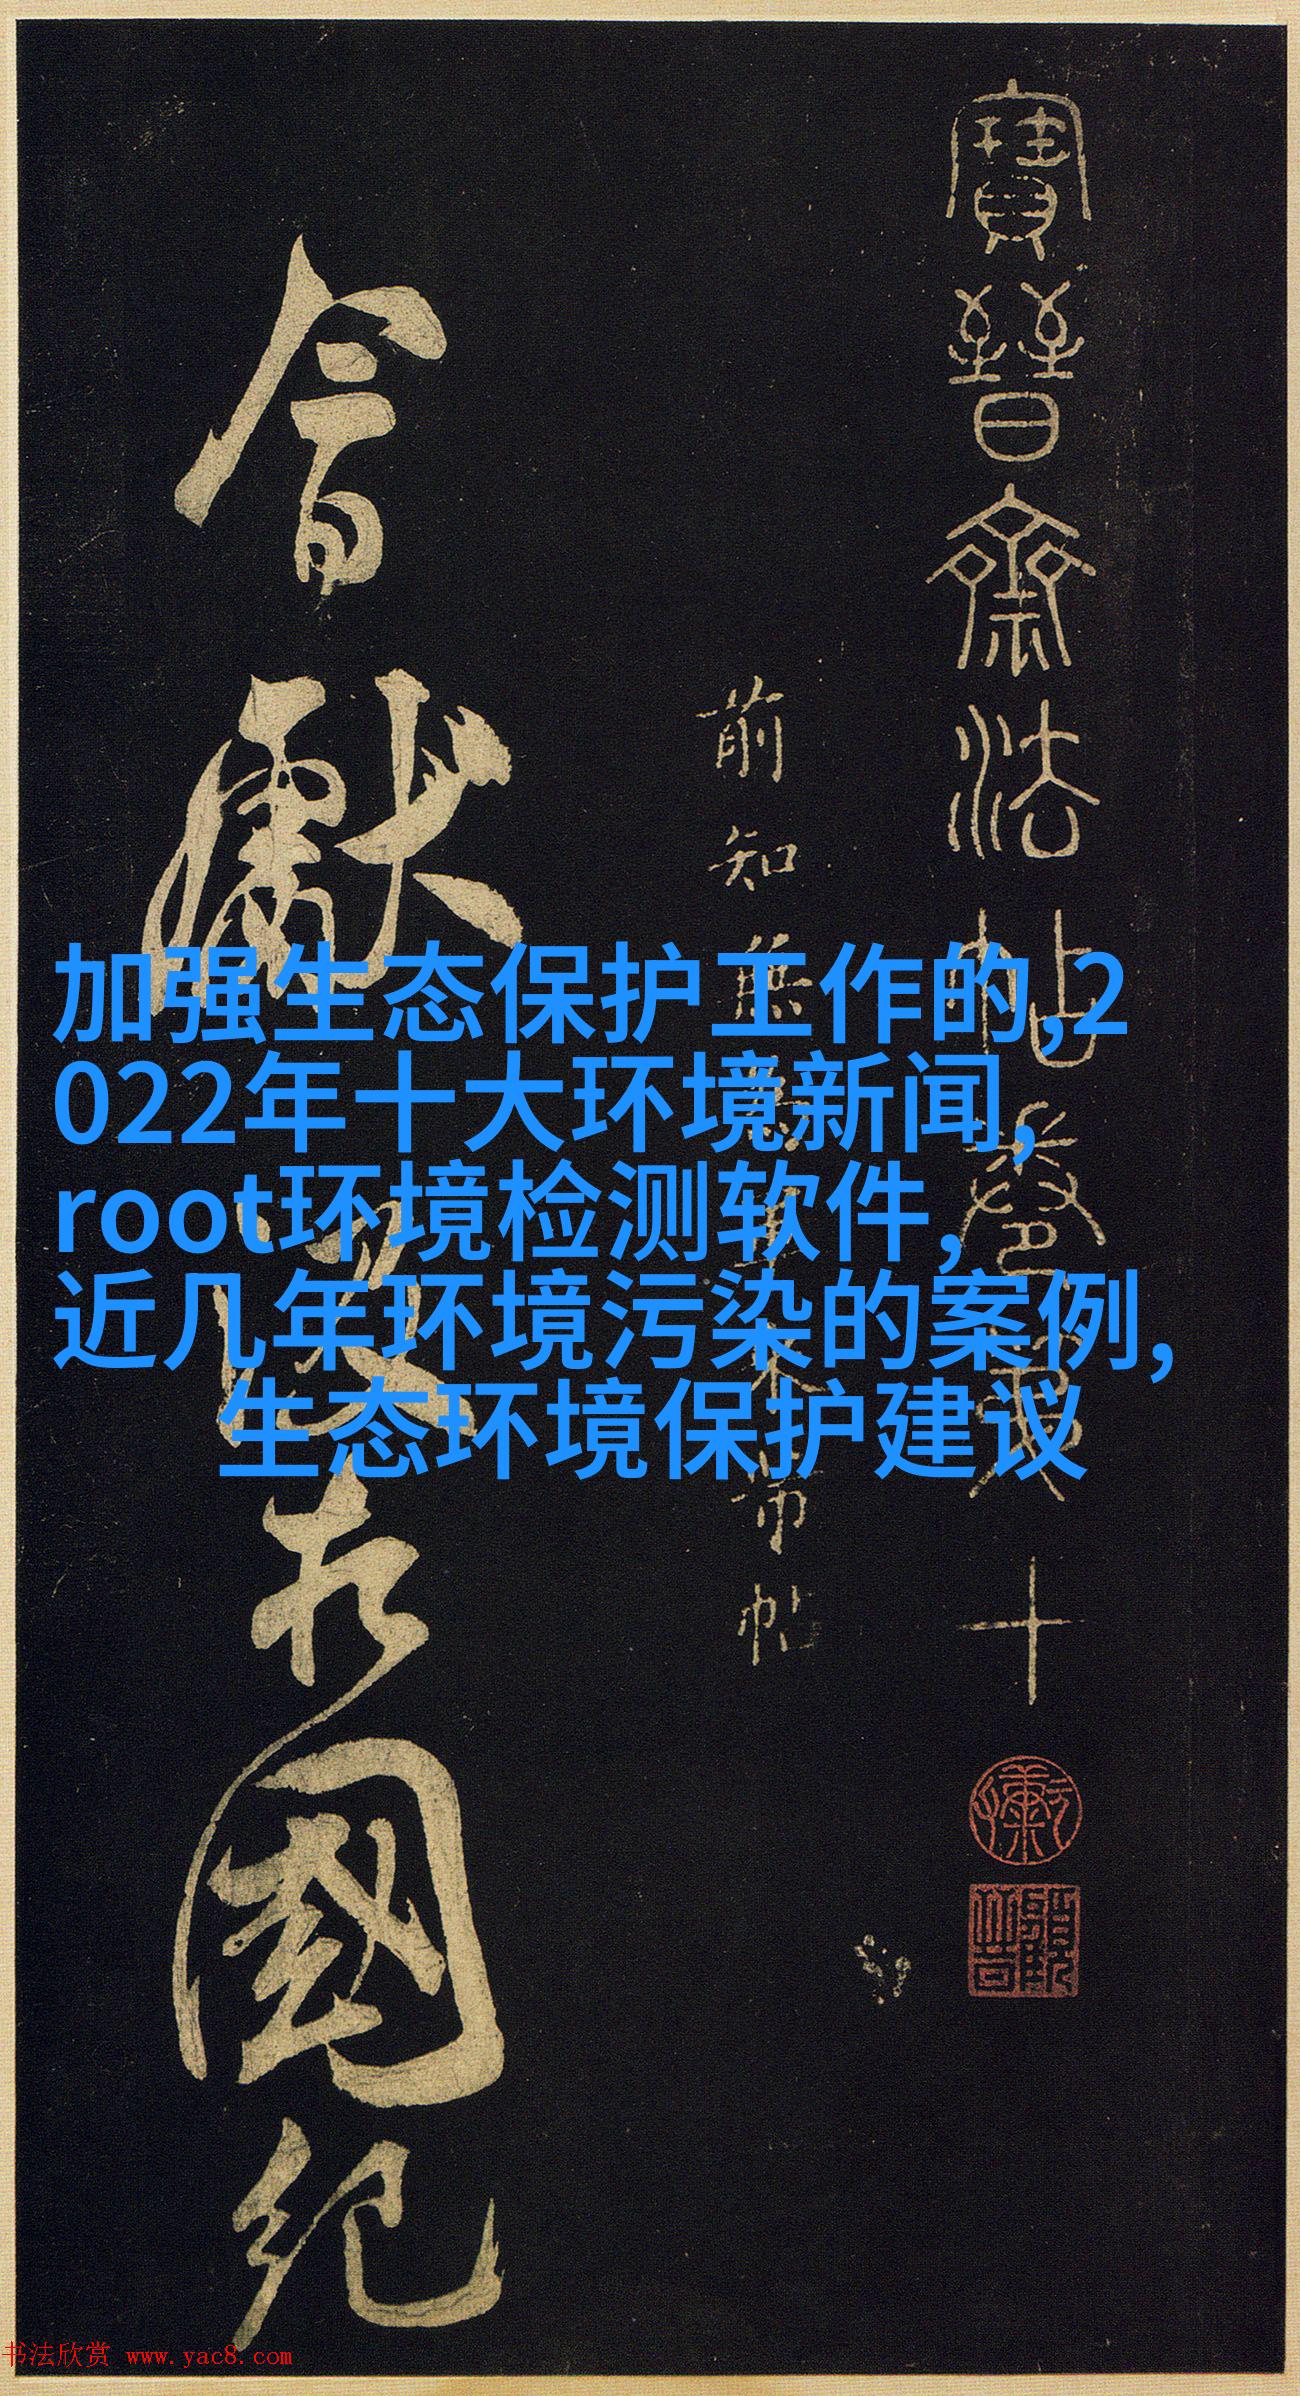 寶晉齋法帖卷第十
前知無為軍米芾帖
會獻
於國紀
加强生态保护工作的,2
022年十大环境新闻,
root环境检测软件,
近几年环境污染的案例,
生态环境保护建议
书法欣赏 www.yac8.com